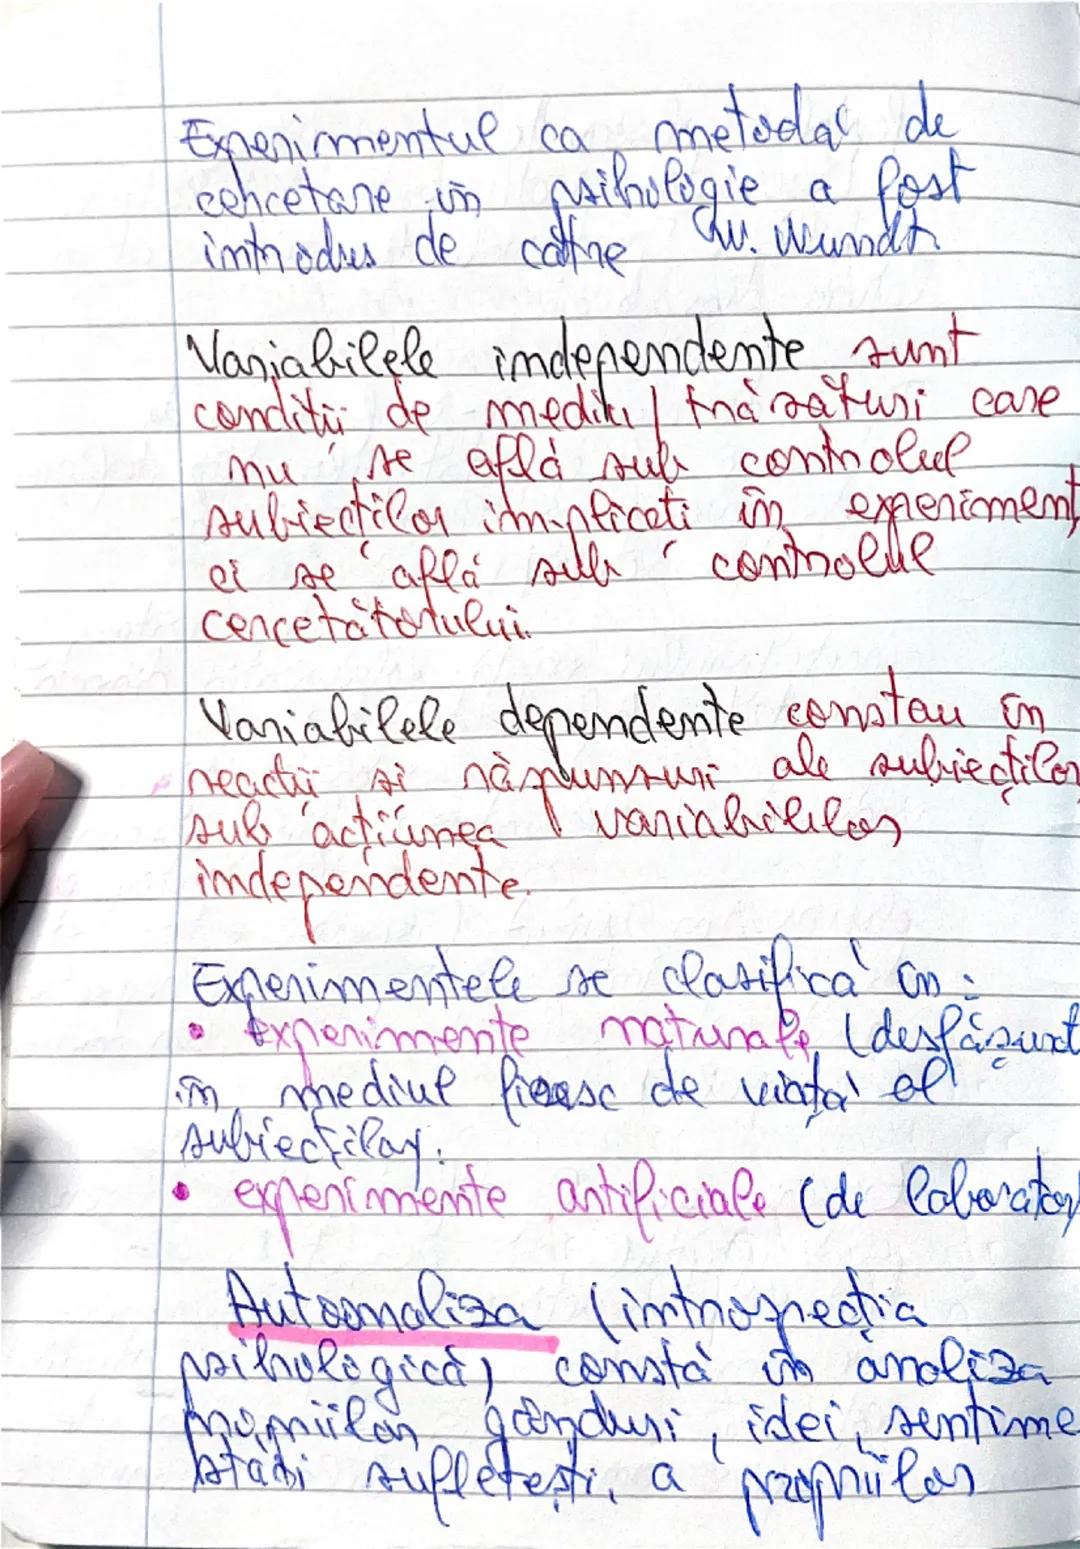 Experimentul ca metodă de
cercetare în psihologie a fost
introdus de către W. Wundt.
Variabilele independente sunt
condiții de mediu / trăsături care
nu se află sub controlul
subiecților implicați în experiment,
ci se află sub controlul
cercetătorului.
Variabilele dependente constau în
reacții și răspunsuri ale subiecților
sub acțiunea variabilelor
independente.
Experimentele se clasifică în:
• experimente naturale (desfășurat
în mediul firesc de viață al
subiecților.
• experimente artificiale (de laborator
Autoanaliza (introspecția
psihologică) constă în analiza
propriilor gânduri, idei, sentime
stări sufletești, a propriilor